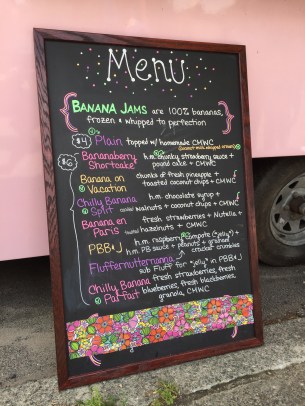 Menu
BANANA JAMS are 100% bananas,
frozen & whipped to perfection
$4 Plain topped w/ homemade CMWC
(coconut milk whipped cream)
$6 Bananaberry Shortcake h.m. chunky strawberry sauce +
pound cake + CMWC
Banana on Vacation chunks of fresh pineapple +
toasted coconut chips + CMWC
Chilly Banana Split h.m. chocolate syrup +
walnuts + coconut chips + CMWC
Banana en Paris fresh strawberries + Nutella +
toasted hazelnuts + CMWC
PBB&J h.m. raspberry compote ("jelly") +
h.m. PB sauce + peanuts + graham
cracker crumbles
Fluffernutternanna sub Fluff for "jelly" in PBB&J
Chilly Banana Parfait fresh strawberries, fresh
blueberries, fresh blackberries,
granola, CMWC